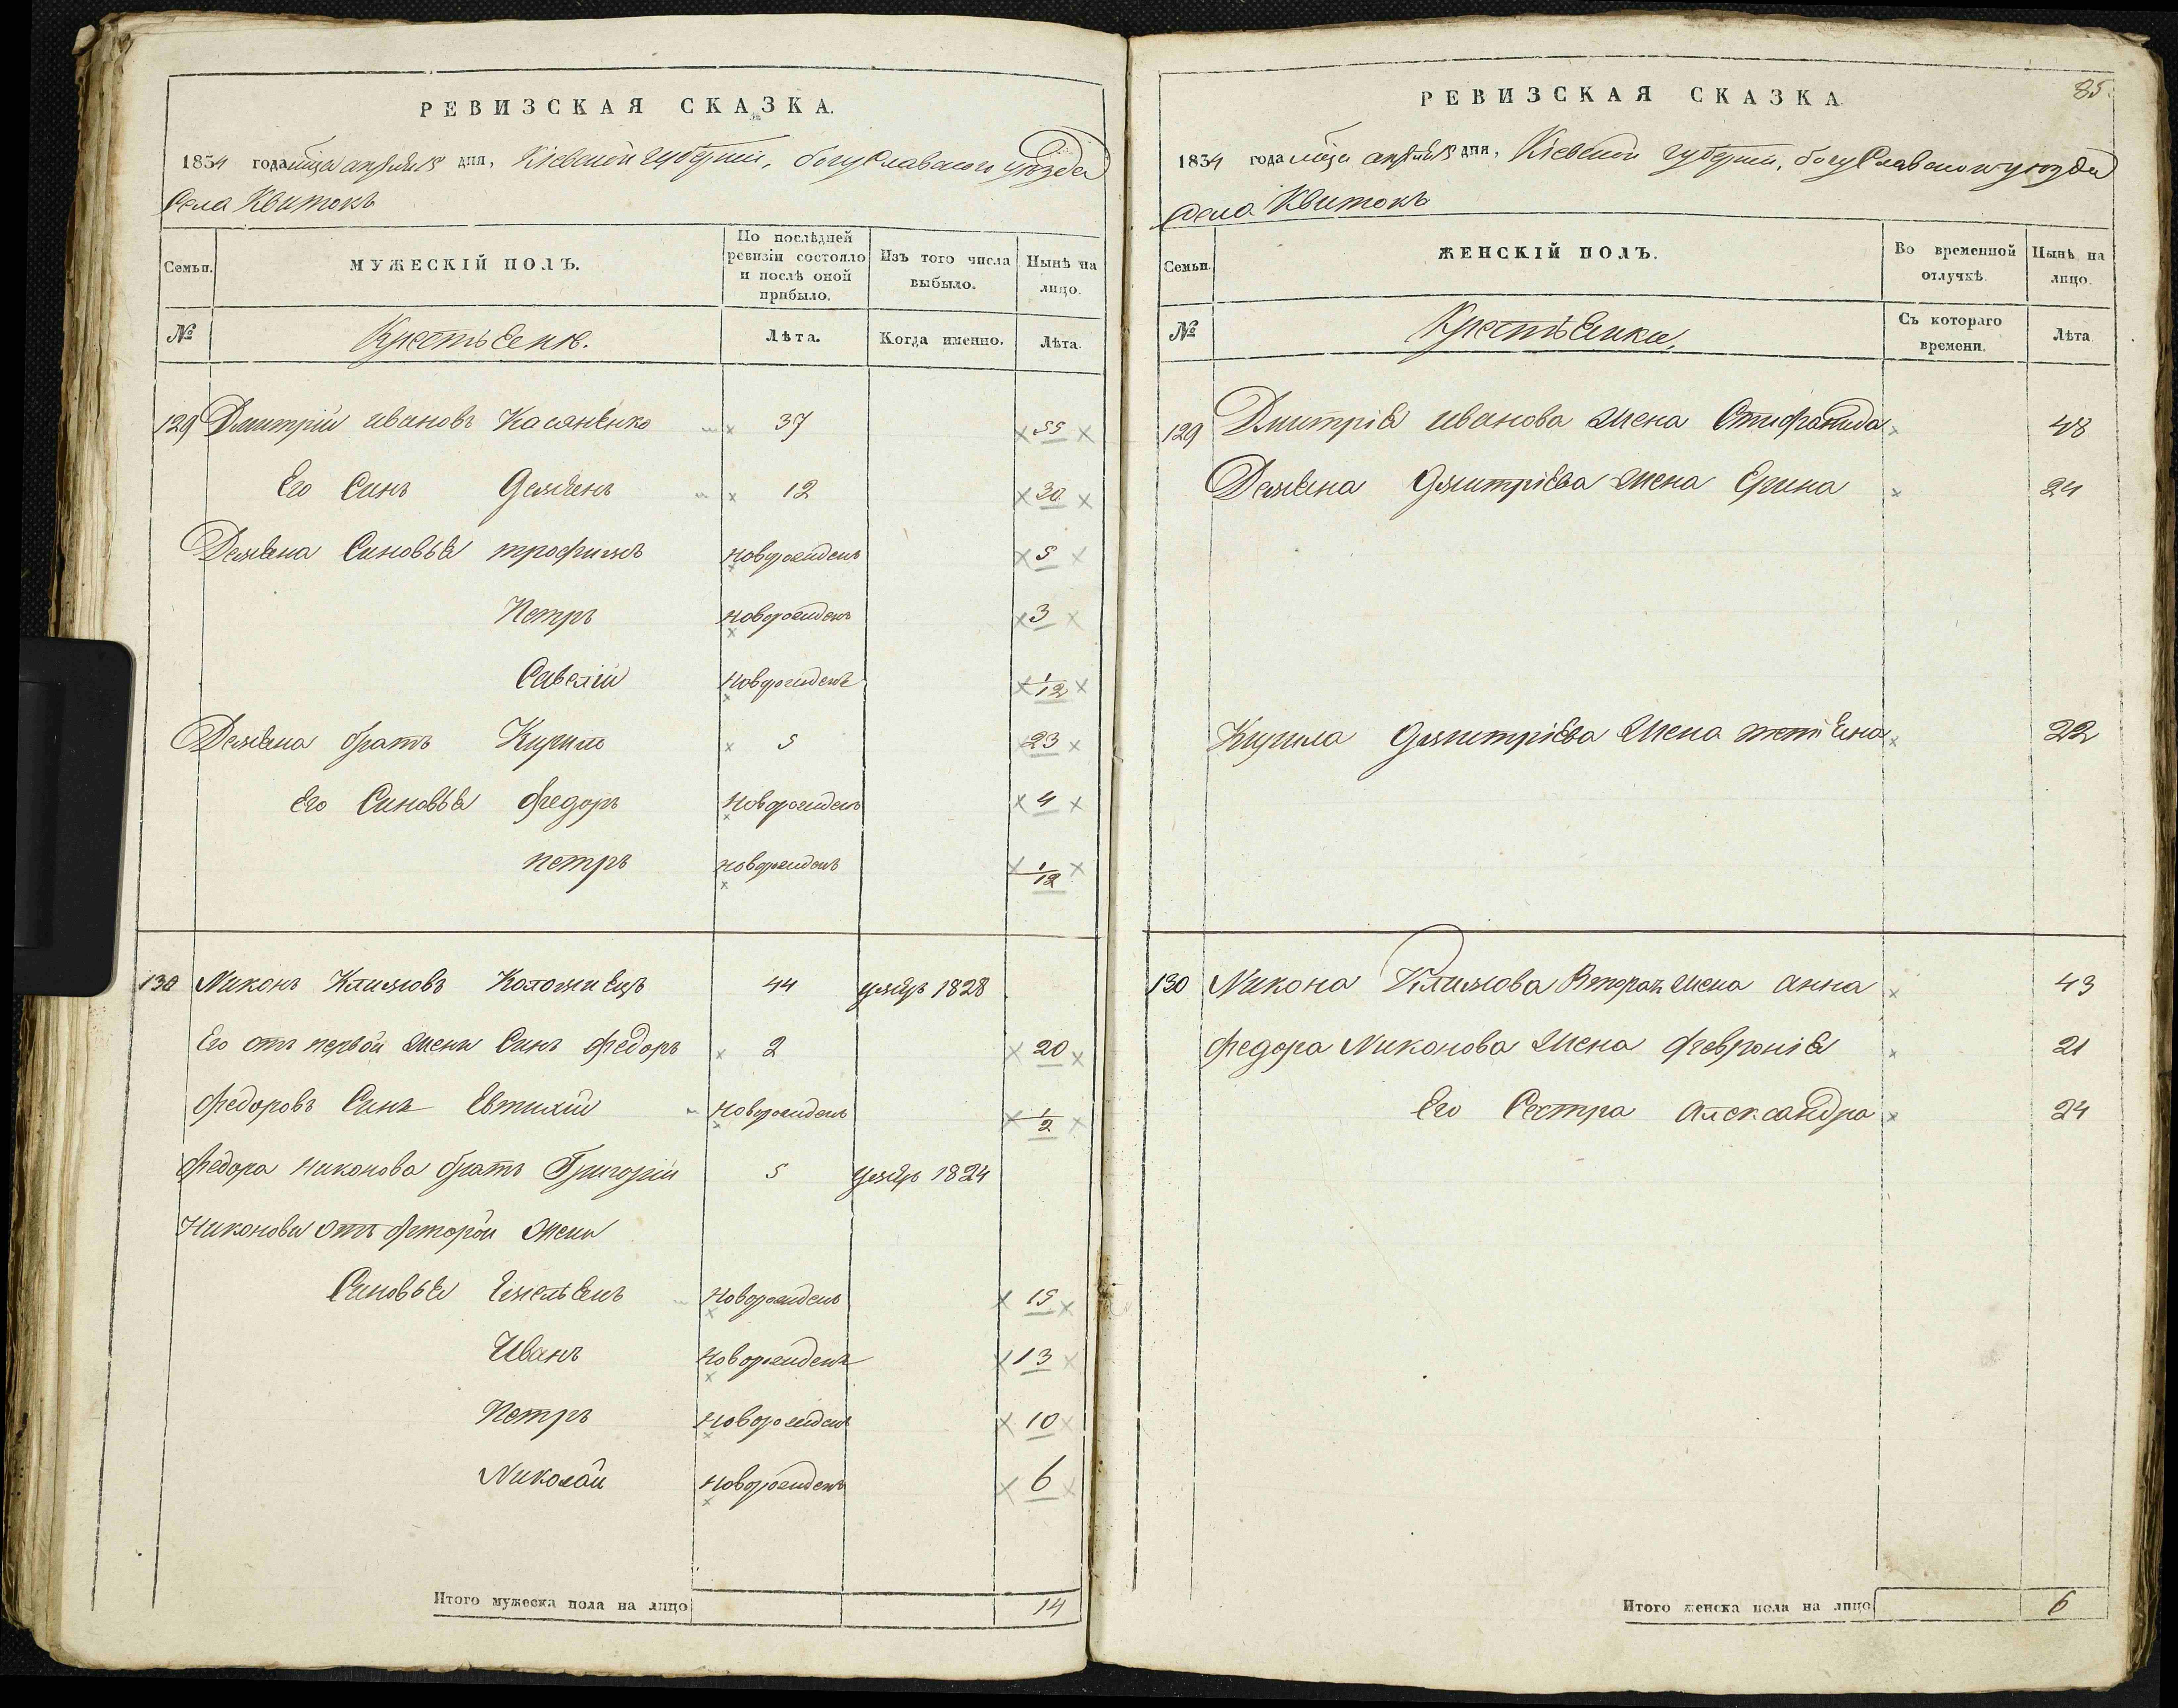 РЕВИЗСКАЯ СКАЗКА.
1834 года мца апреля 18 дня, Кіевской губерніи, богуславского уезда
Села Квитокъ
Семьи.
МУЖЕСКІЙ ПОЛЪ.
По послѣдней ревизіи состояло и послѣ оной прибыло.
Изъ того числа выбыло.
Нынѣ на лицо.
№
Крестьяне.
Лѣта.
Когда именно.
Лѣта.
129 Дмитрій ивановъ Касяненко 37 55
Его Синъ Демьянъ 12 30
Демьяна Синовья трофимъ новорожденъ 5
Петръ новорожденъ 3
Савелій новорожденъ 1/12
Демьяна братъ Кирило 5 23
Его Синовья федоръ новорожденъ 4
петръ новорожденъ 1/12
130 Никонъ Климовъ Коломиецъ 44 умеръ 1828
Его отъ первой жени Синъ федоръ 2 20
федоровъ Синъ Евтихій новорожденъ 1/2
федора никонова братъ Григорій 5 умеръ 1824
Никонови отъ фторой жени
Синовья Емельянъ новорожденъ 15
Иванъ новорожденъ 13
Петръ новорожденъ 10
Николай новорожденъ 6
Итого мужеска пола на лицо 14
85
РЕВИЗСКАЯ СКАЗКА
1834 года мца апреля 18 дня, Кіевской губерніи, богуславского уезда
Села Квитокъ
Семьи.
ЖЕНСКІЙ ПОЛЪ.
Во временной отлучкѣ.
Нынѣ на лицо.
№
Крестьянки.
Съ котораго времени.
Лѣта.
129 Дмитрія иванова жена Стифанида 48
Демьяна Дмитріева жена Ерина 24
Кирила Дмитріева жена 22
130 Никона Климова Вторая жена анна 43
федора Никонова жена феврония 21
Его Сестра александра 24
Итого женска пола на лицо 6